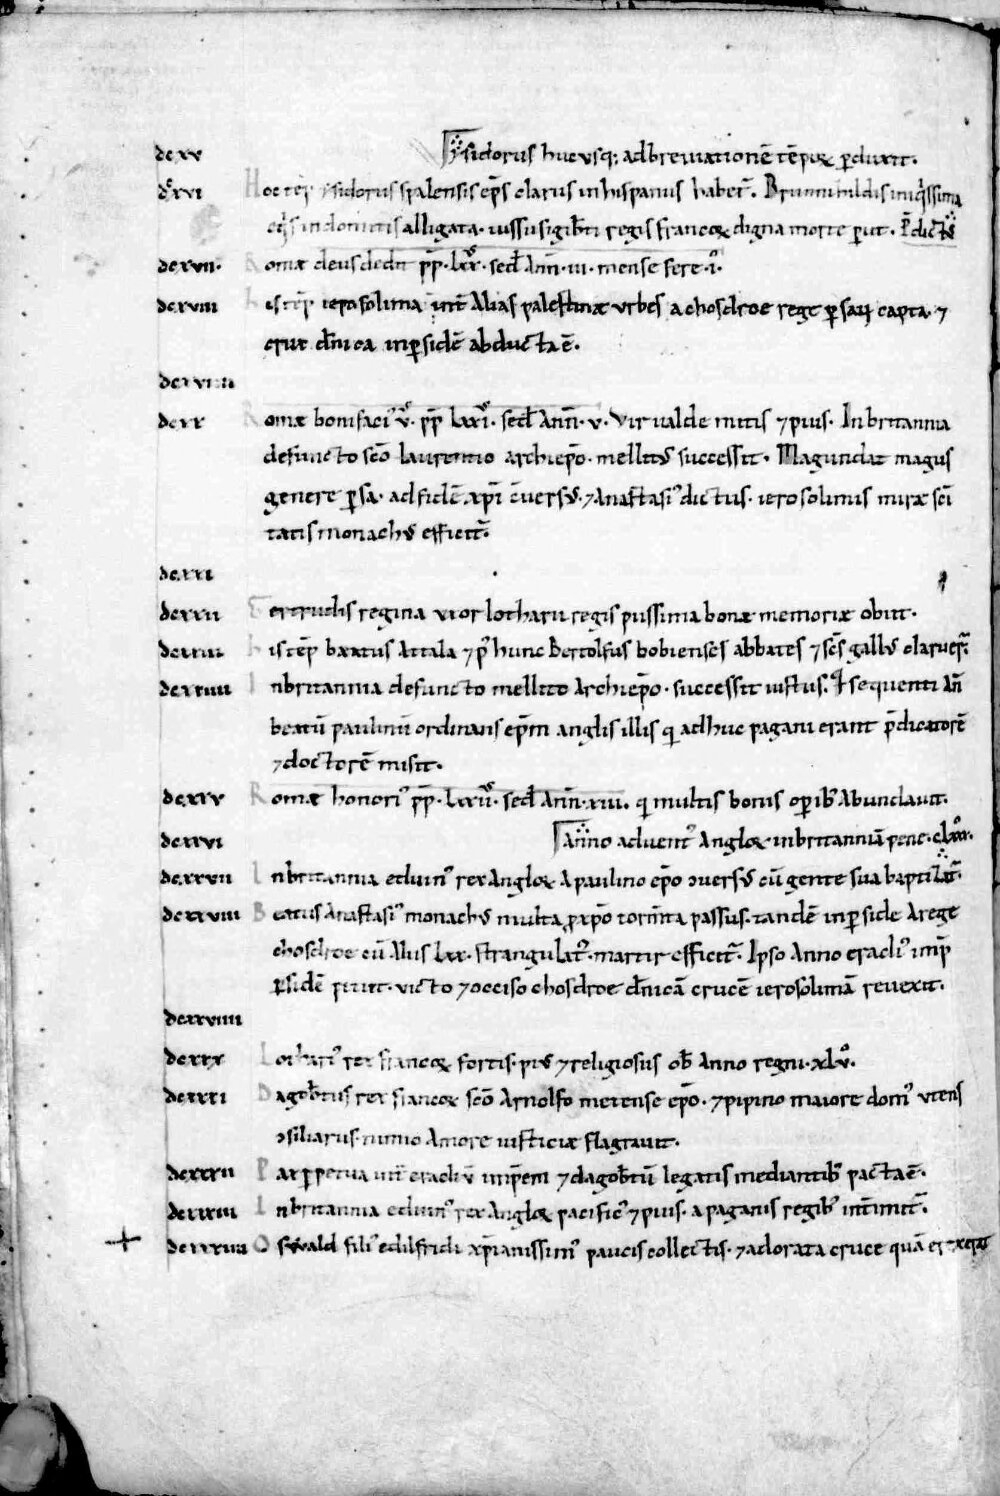 dcxv Ysidorus hucusq; adbreuiationē tēporꝝ ꝑduxit.
dc̄xvi Hoc tēp̄ ysidorus spalensis ep̄s clarus in hispaniis habet᷑. Brunnihildis iniq̇ssima
eq̇s indomitis alligata. iussu sigib̄ti regis francoꝝ digna morte ꝑiit. P̄dictꝰ
dcxvii. Romæ deusdedit p̄p̄. lxx. sed̄ Ann̄. iii. mense fere .i.
dcxviii His tēp̄ ieposolima int̄ Alias palestinæ urbes a chosdroe rege ꝑsaꝝ capta. ⁊
crux d̄nica in ꝑsidē abducta ē.
dcxviiii
dcxx Romæ bonifaciꝰ .v. p̄p̄ lxxi. sed̄ Ann̄. v. Vir ualde mitis ⁊ pius. In britannia
defuncto sc̄o laurentio archiep̄o. mellitꝰ successit. Magundat magus
genere ꝑsa. ad fidē xp̄i c̄uersꝰ. ⁊ Anastasiꝰ dictus. ierosolimis miræ sc̄i
tatis monachꝰ efficit᷑.
dcxxi
dcxxii Bertrudis regina uxor lotharii regis piissima bonæ memoriæ obiit.
dcxxiii His tēp̄ beatus Attala ⁊ p̄ hunc Bertolfus bobienses abbates ⁊ sc̄s gallꝰ claruer̄.
dcxxiiii In britannia defuncto mellito Archiep̄o. successit iustus. Qui sequenti An̄
beatū paulinū ordinans ep̄m anglis illis qi adhuc pagani erant p̄dicatorē
⁊ doctorē misit.
dcxxv Romæ honoriꝰ p̄p̄. lxxii. sed̄ Ann̄. xiii. qi multis bonis oꝑibꝰ Abundauit.
dcxxvi Anno aduentꝰ Angloꝝ in britanniā pene. clxxx.
dcxxvii In britannia eduinꝰ rex Angloꝝ A paulino ep̄o ɔuersꝰ cū gente sua baptizat᷑.
dcxxviii Beatus Anastasiꝰ monachꝰ multa ꝓ xp̄o torm̄ta passus. tandē in ꝑside A rege
chosdroe cū Aliis lxx. strangulat᷑. martir efficit᷑. Ipso Anno eracliꝰ imp̄
ꝑsidē petiit. uicto ⁊ occiso chosdroe d̄nicā crucē ierosolimā reuexit.
dcxxviiii
dcxxx Lothariꝰ rex francoꝝ fortis. piꝰ ⁊ religiosus ob̄ Anno regni. xlv.
dcxxxi Dagob̄tus rex francoꝝ sc̄o Arnolfo metense ep̄o. ⁊ pipino maiore domꝰ utens
ɔsiliariis. nimio Amore iusticiæ flagrauit.
dcxxxii Pax ꝑpetua int̄ eracliū imp̄em ⁊ dagob̄tū legatis mediantibꝰ pacta ē.
dcxxxiii In britannia eduinꝰ rex Angloꝝ pacificꝰ ⁊ pius. a paganis regibꝰ int̄imit᷑.
dcxxxiiii Oswald filiꝰ edilfridi xp̄ianissimꝰ paucis collectis. ⁊ adorata cruce quā erexerat